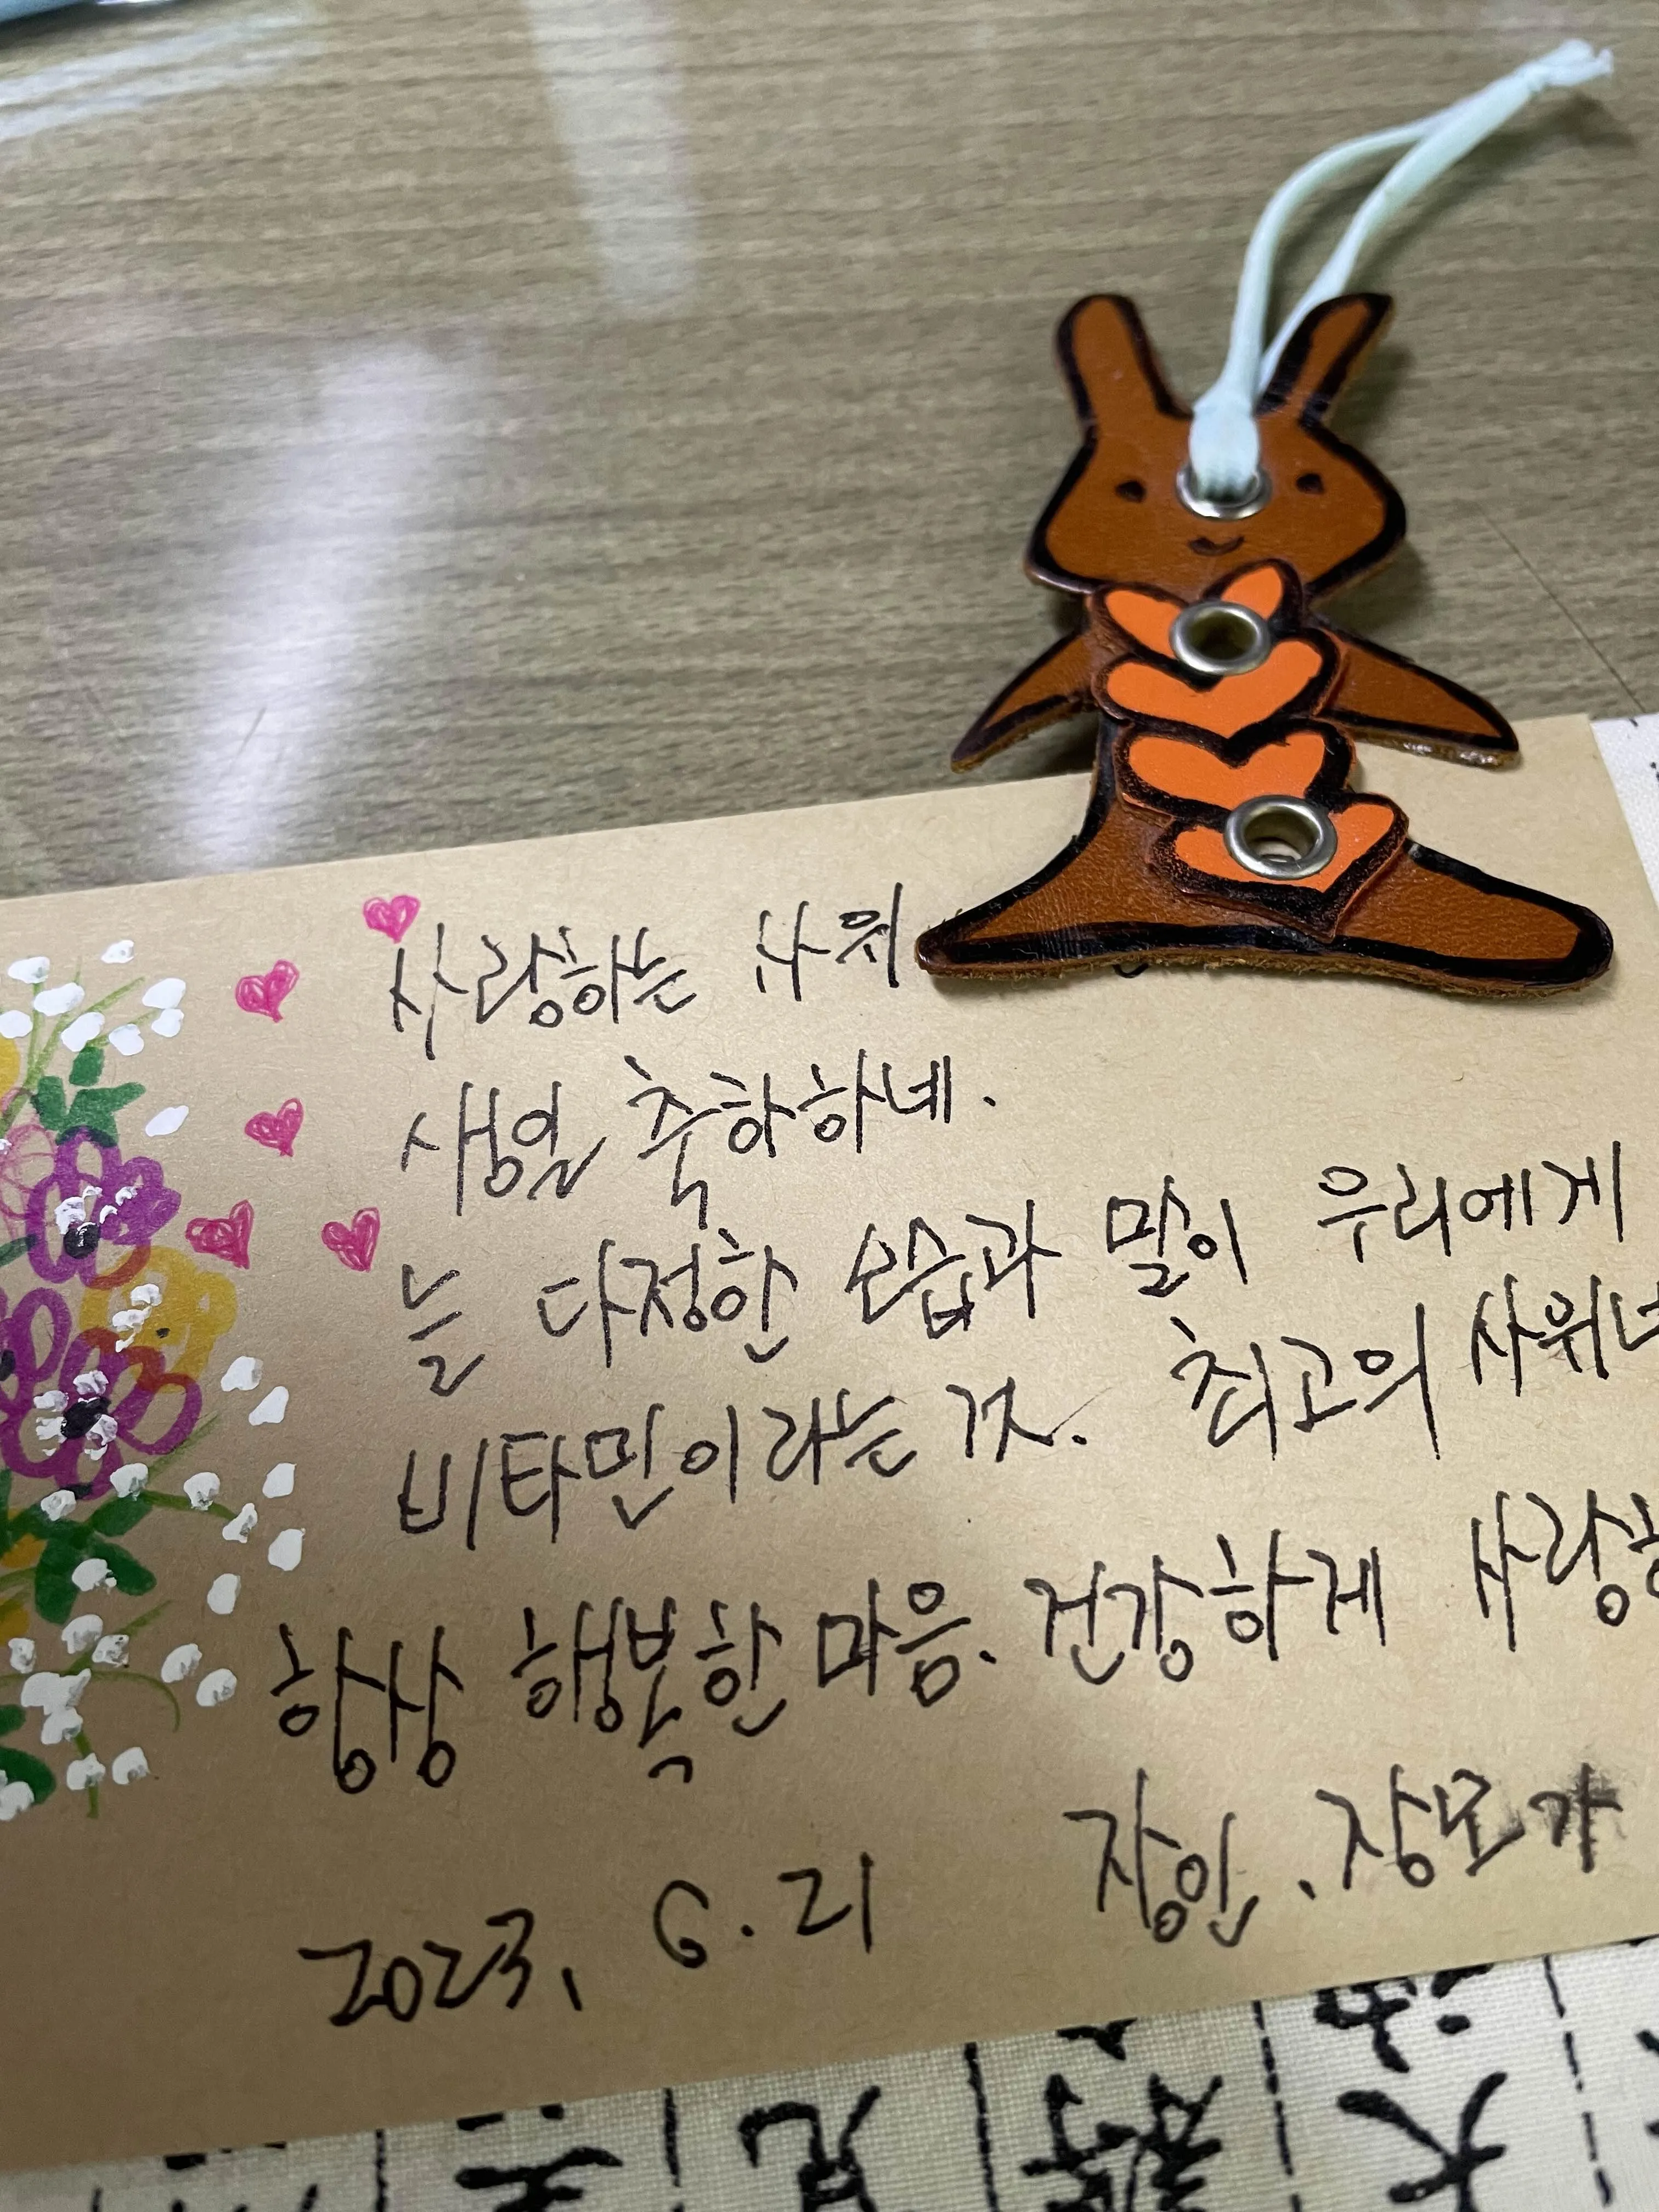 사랑하는 사위
생일 축하하네.
늘 다정한 모습과 말이 우리에게
비타민이라는 거. 최고의 사위
항상 행복한 마음. 건강하게 사랑
2023. 6. 21 장인. 장모가